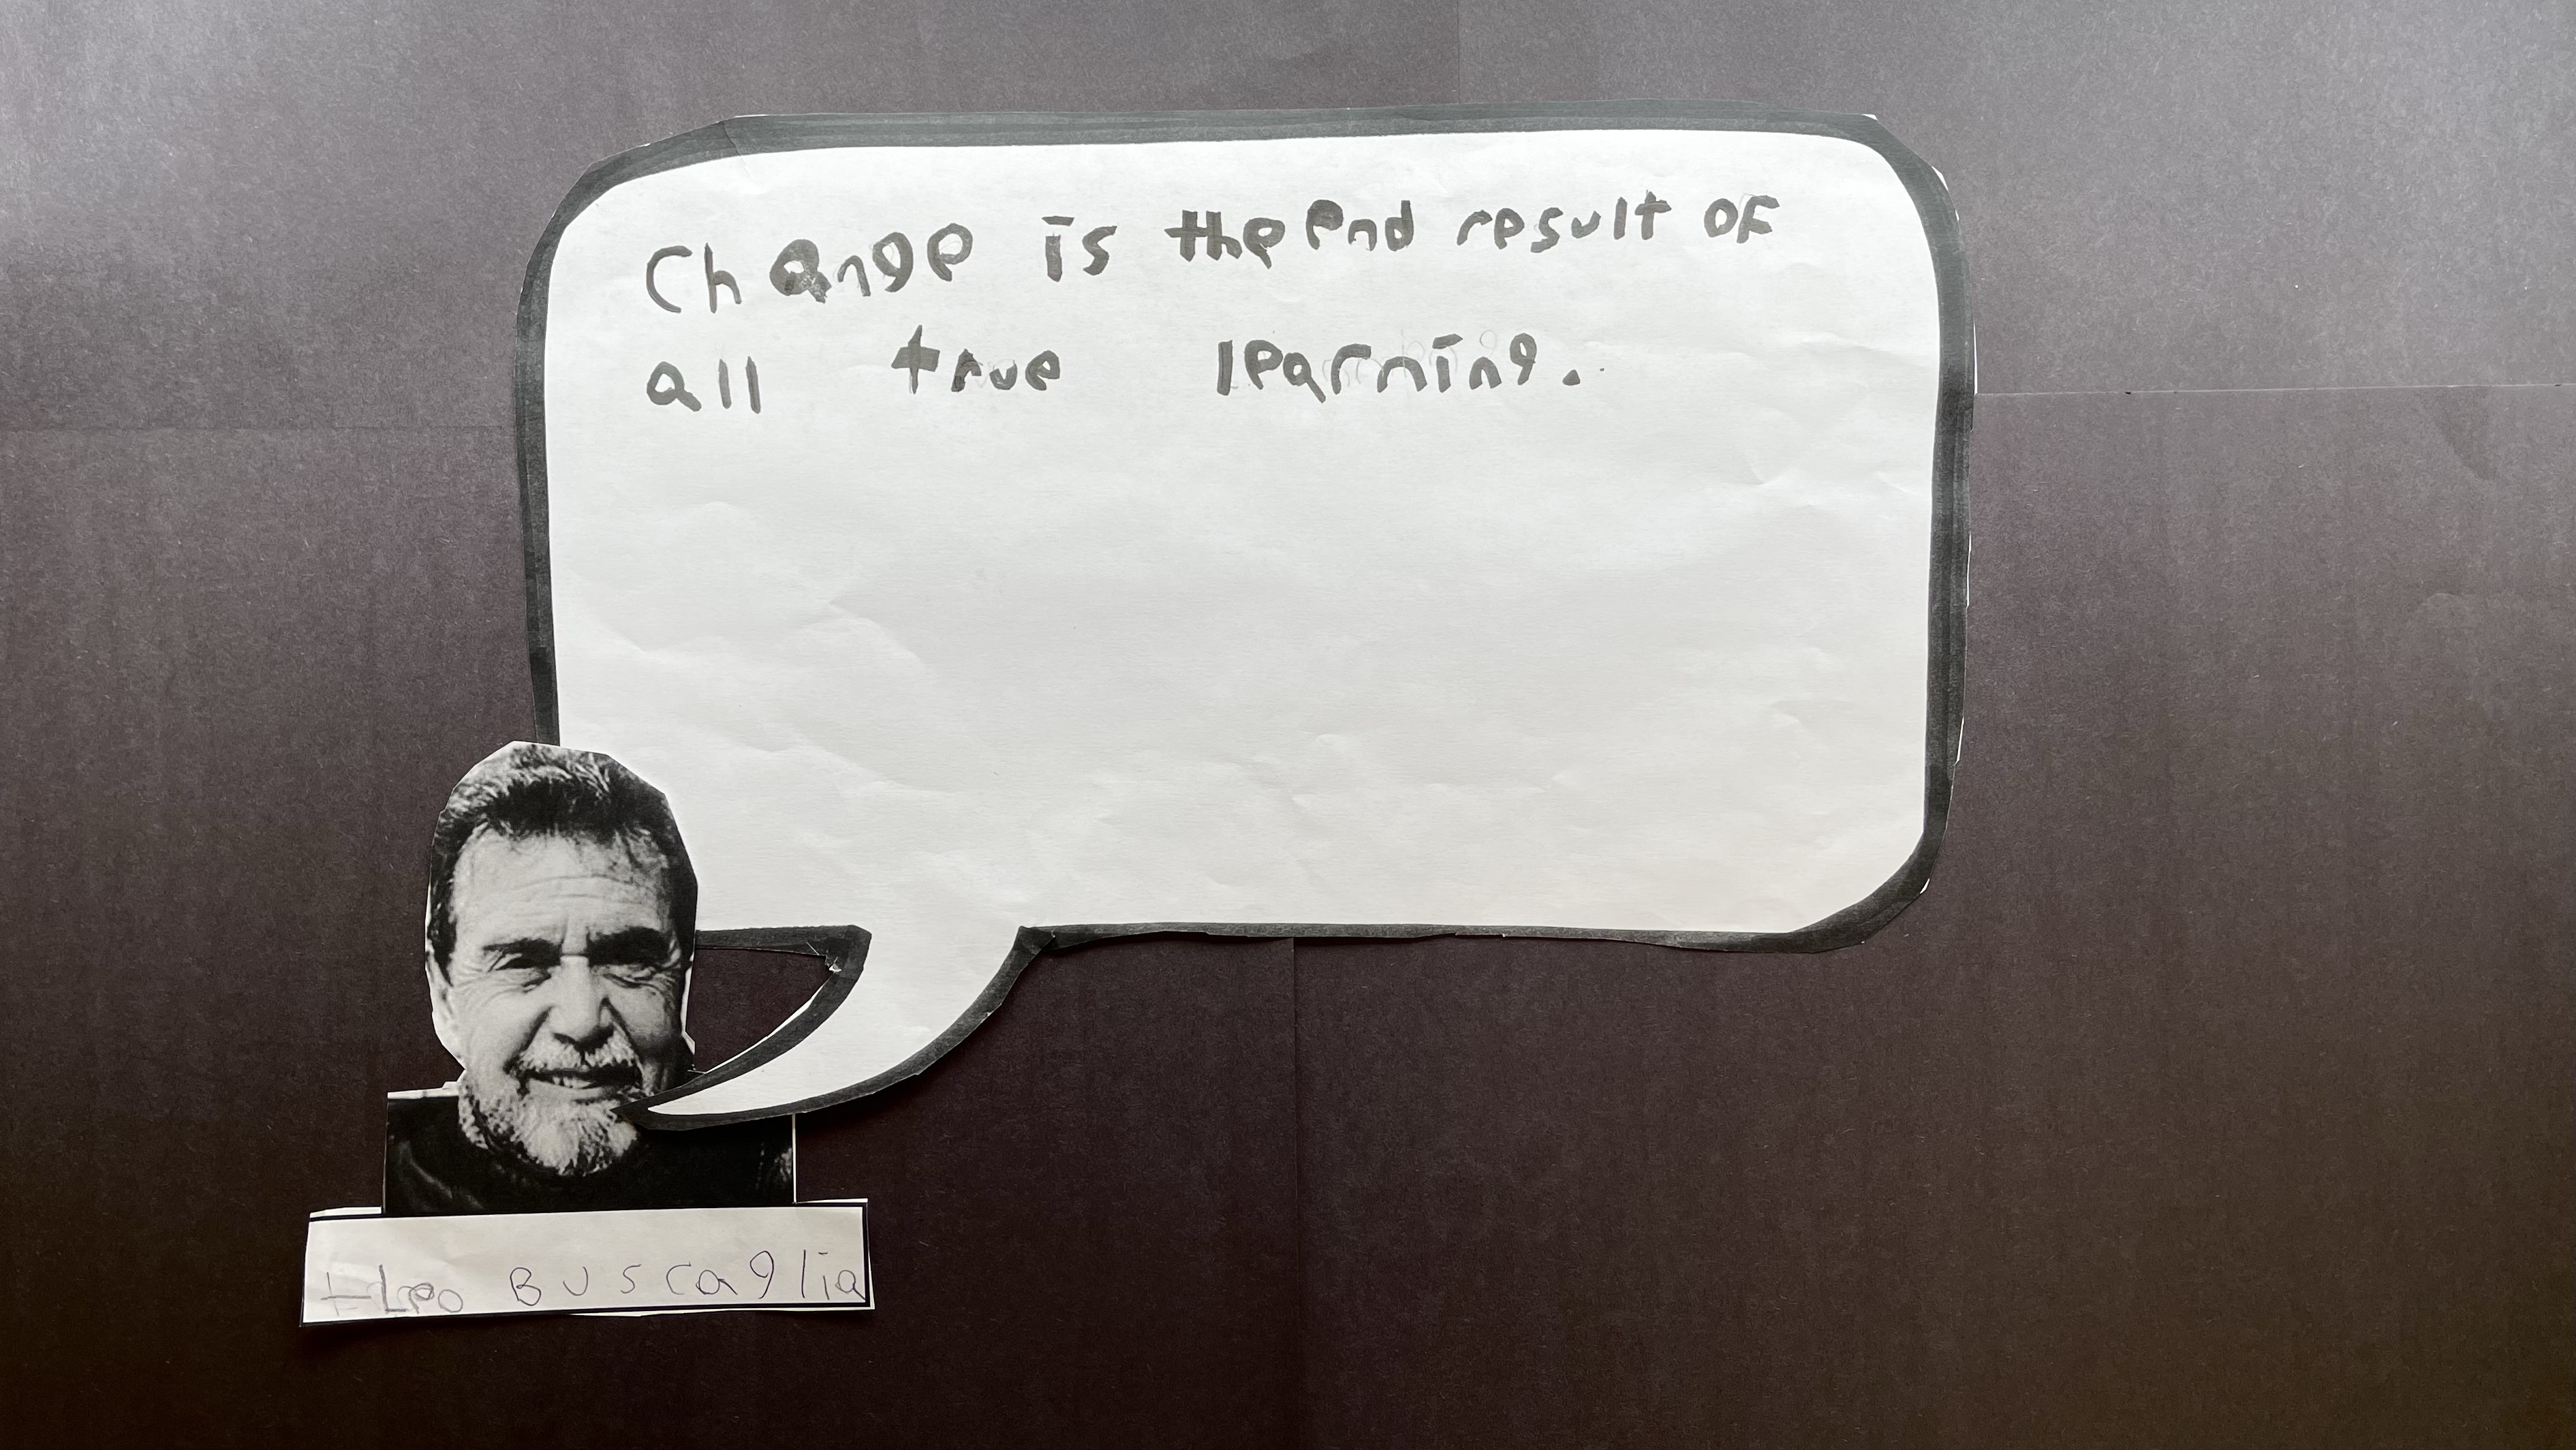 Change is the end result of
all true learning.
Leo Buscaglia